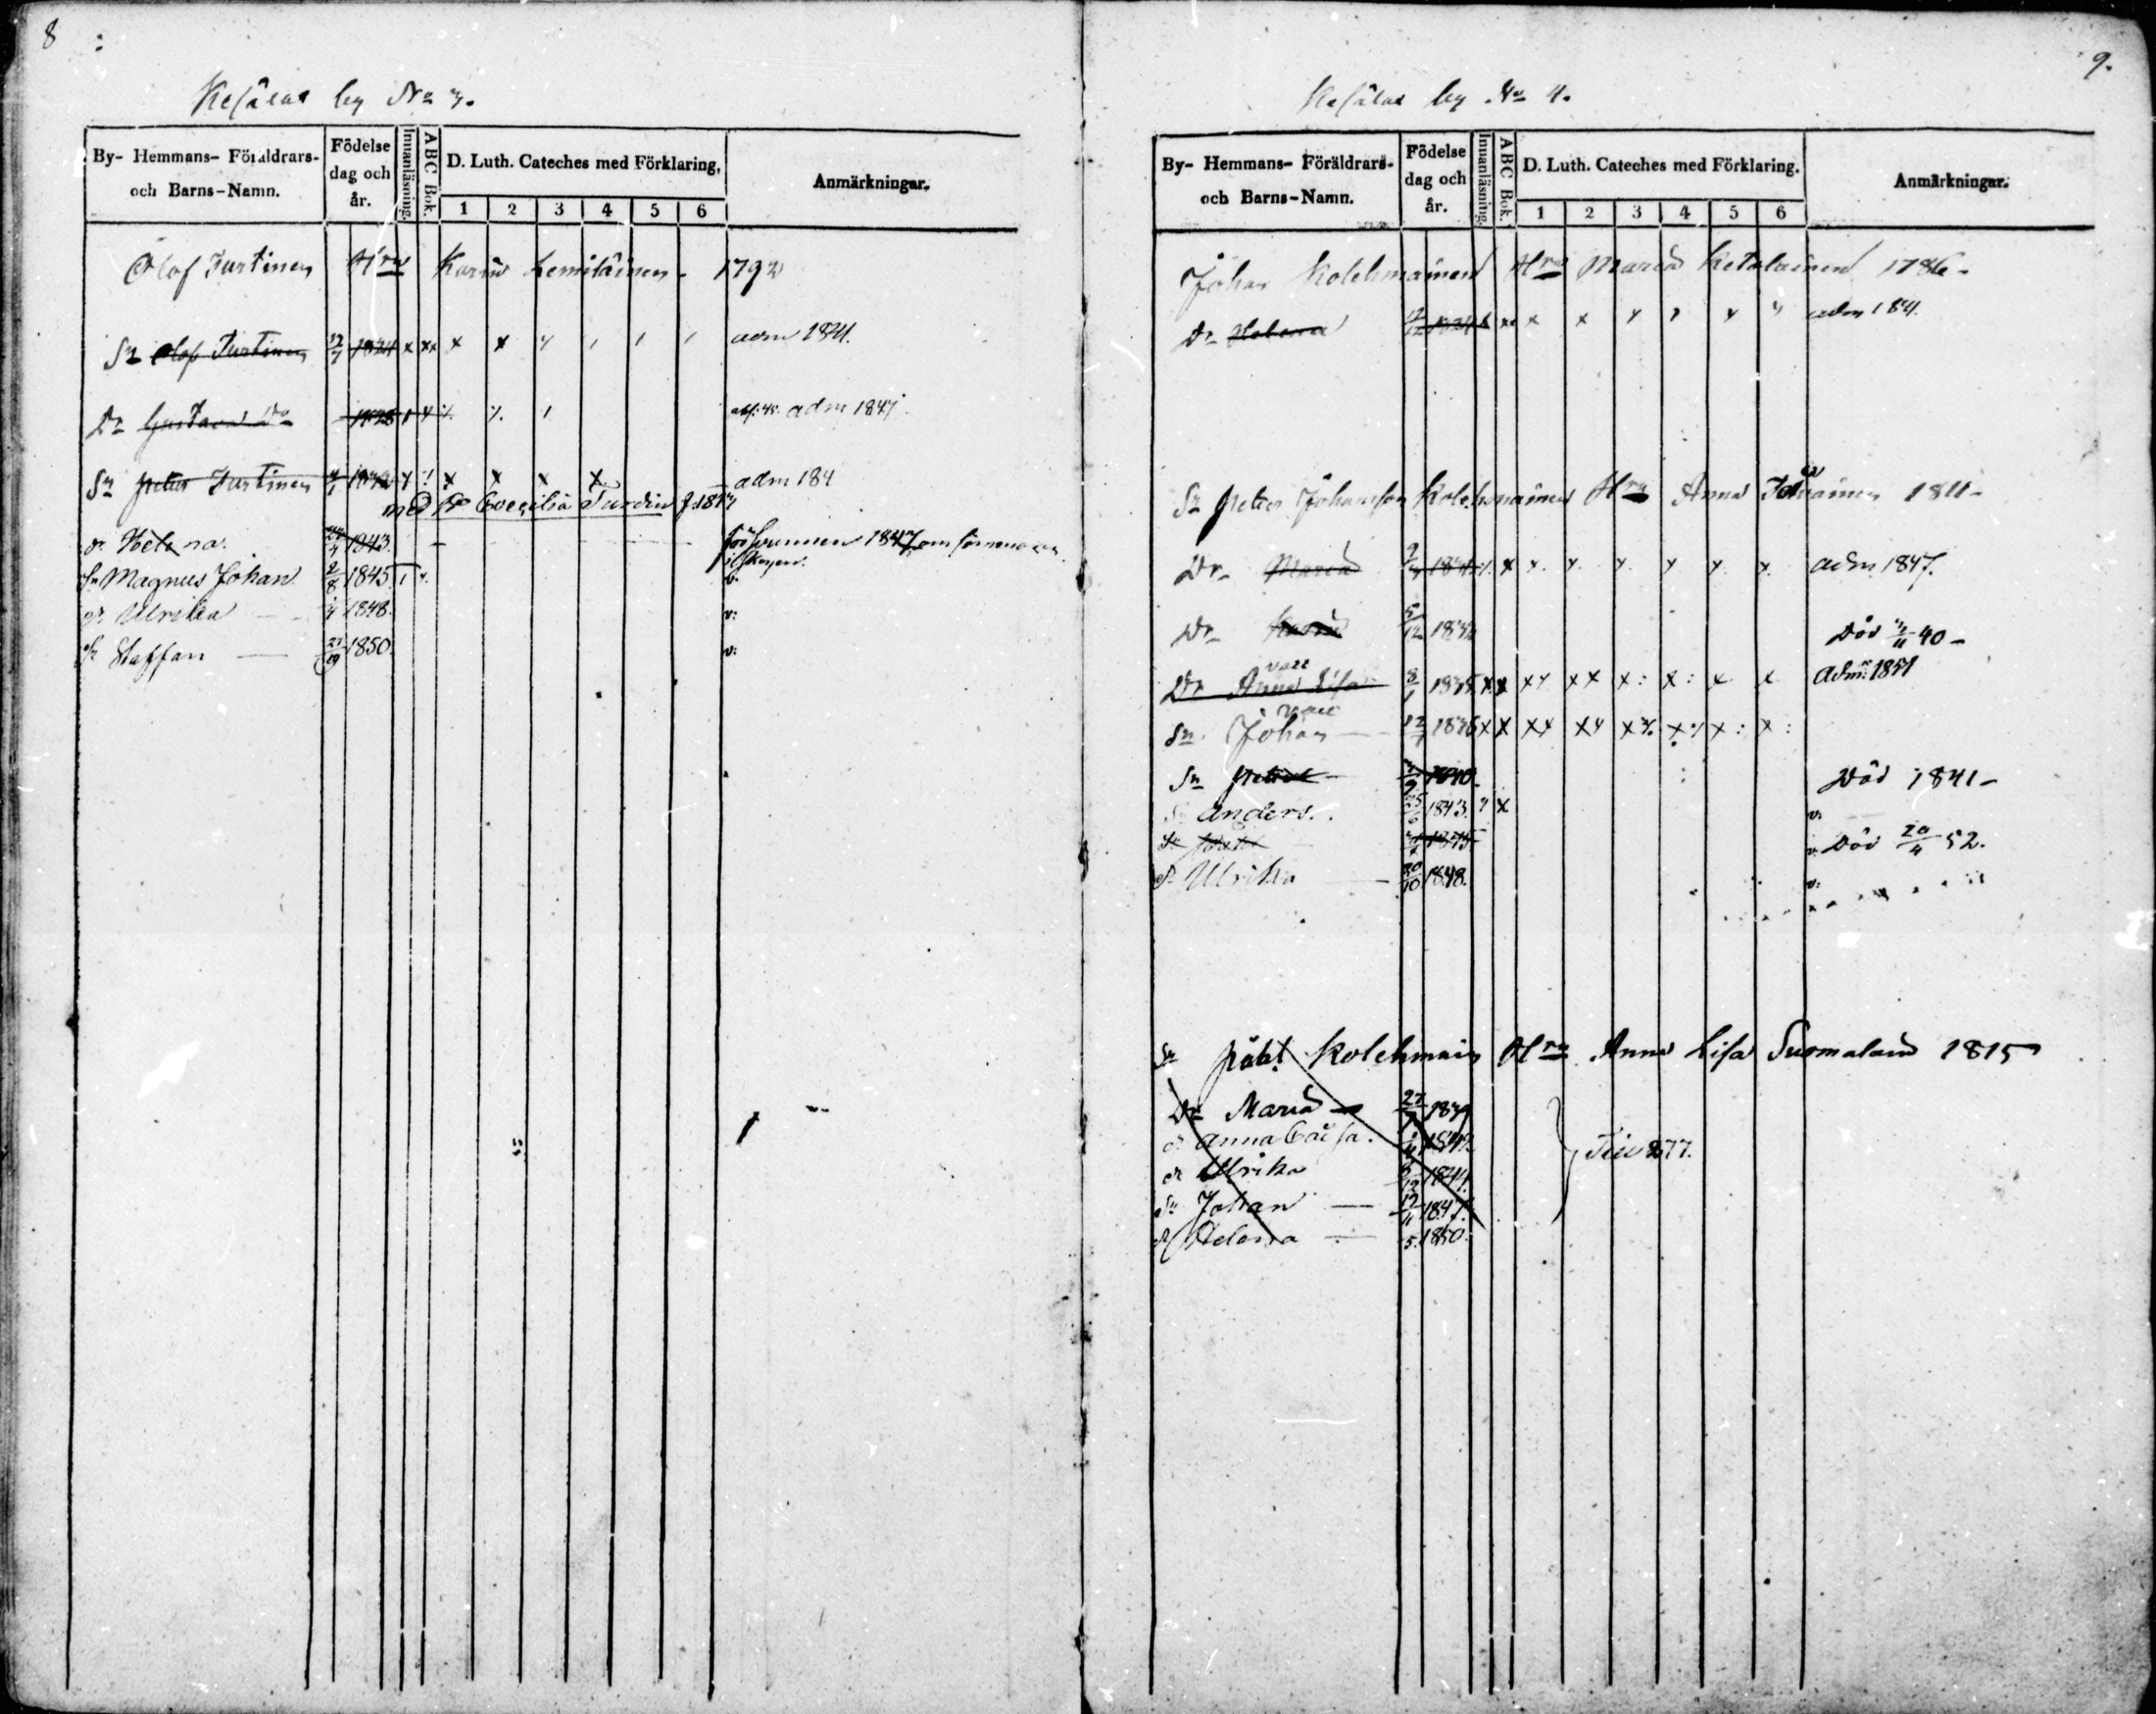 8
Kesälax by No 3.
By- Hemmans- Föräldrars- och Barns-Namn.
Födelse dag och år.
Innanläsning.
A B C Bok.
D. Luth. Cateches med Förklaring,
1 2 3 4 5 6
Anmärkningar.
Olof Turtinen Hru Karin Lemiläinen - 1792
Sn Olof Turtinen 1824 x xx x x adm 1841.
Dr Gustava 1828 adm 1847.
Sn Petter Turtinen x x x x adm 184
med Coecilia f. 1817
dr Helena. 1843. försvunnen 1847 om sommaren i skogen.
Sn Magnus Johan 2/8 1845 v.
dr Ulrika 1848. v:
Sn Staffan 1850. v:
9.
Kesälax by No 4.
By- Hemmans- Föräldrars- och Barns-Namn.
Födelse dag och år.
Innanläsning.
A B C Bok.
D. Luth. Cateches med Förklaring.
1 2 3 4 5 6
Anmärkningar.
Johan Kolehmainen Hru Maria Ketolainen 1786-
Dr Helena x x adm 1841.
Sn Petter Johansson Kolehmainen Hru Anna 1811-
Dr Maria adm 1847.
Dr Karin 5/12 Död 40-
Dr Anna Lisa 8/1 1835 x x xx x: x: x x Adm: 1851
Sn Johan 1836 x x
Sn Petter 1840. Död 1841-
Sn Anders. 25/6 1843. x v.
1845 v. Död 20/4 52.
dr Ulrika 20/10 1848. v:
Sn Påhl Kolehmain Hru Anna Lisa Suomalain 1815
Dr Maria 1839
dr Anna Caisa. 1842.
dr Ulrika 1844.
Sn Johan 1847.
dr Helena 5. 1850.
277.